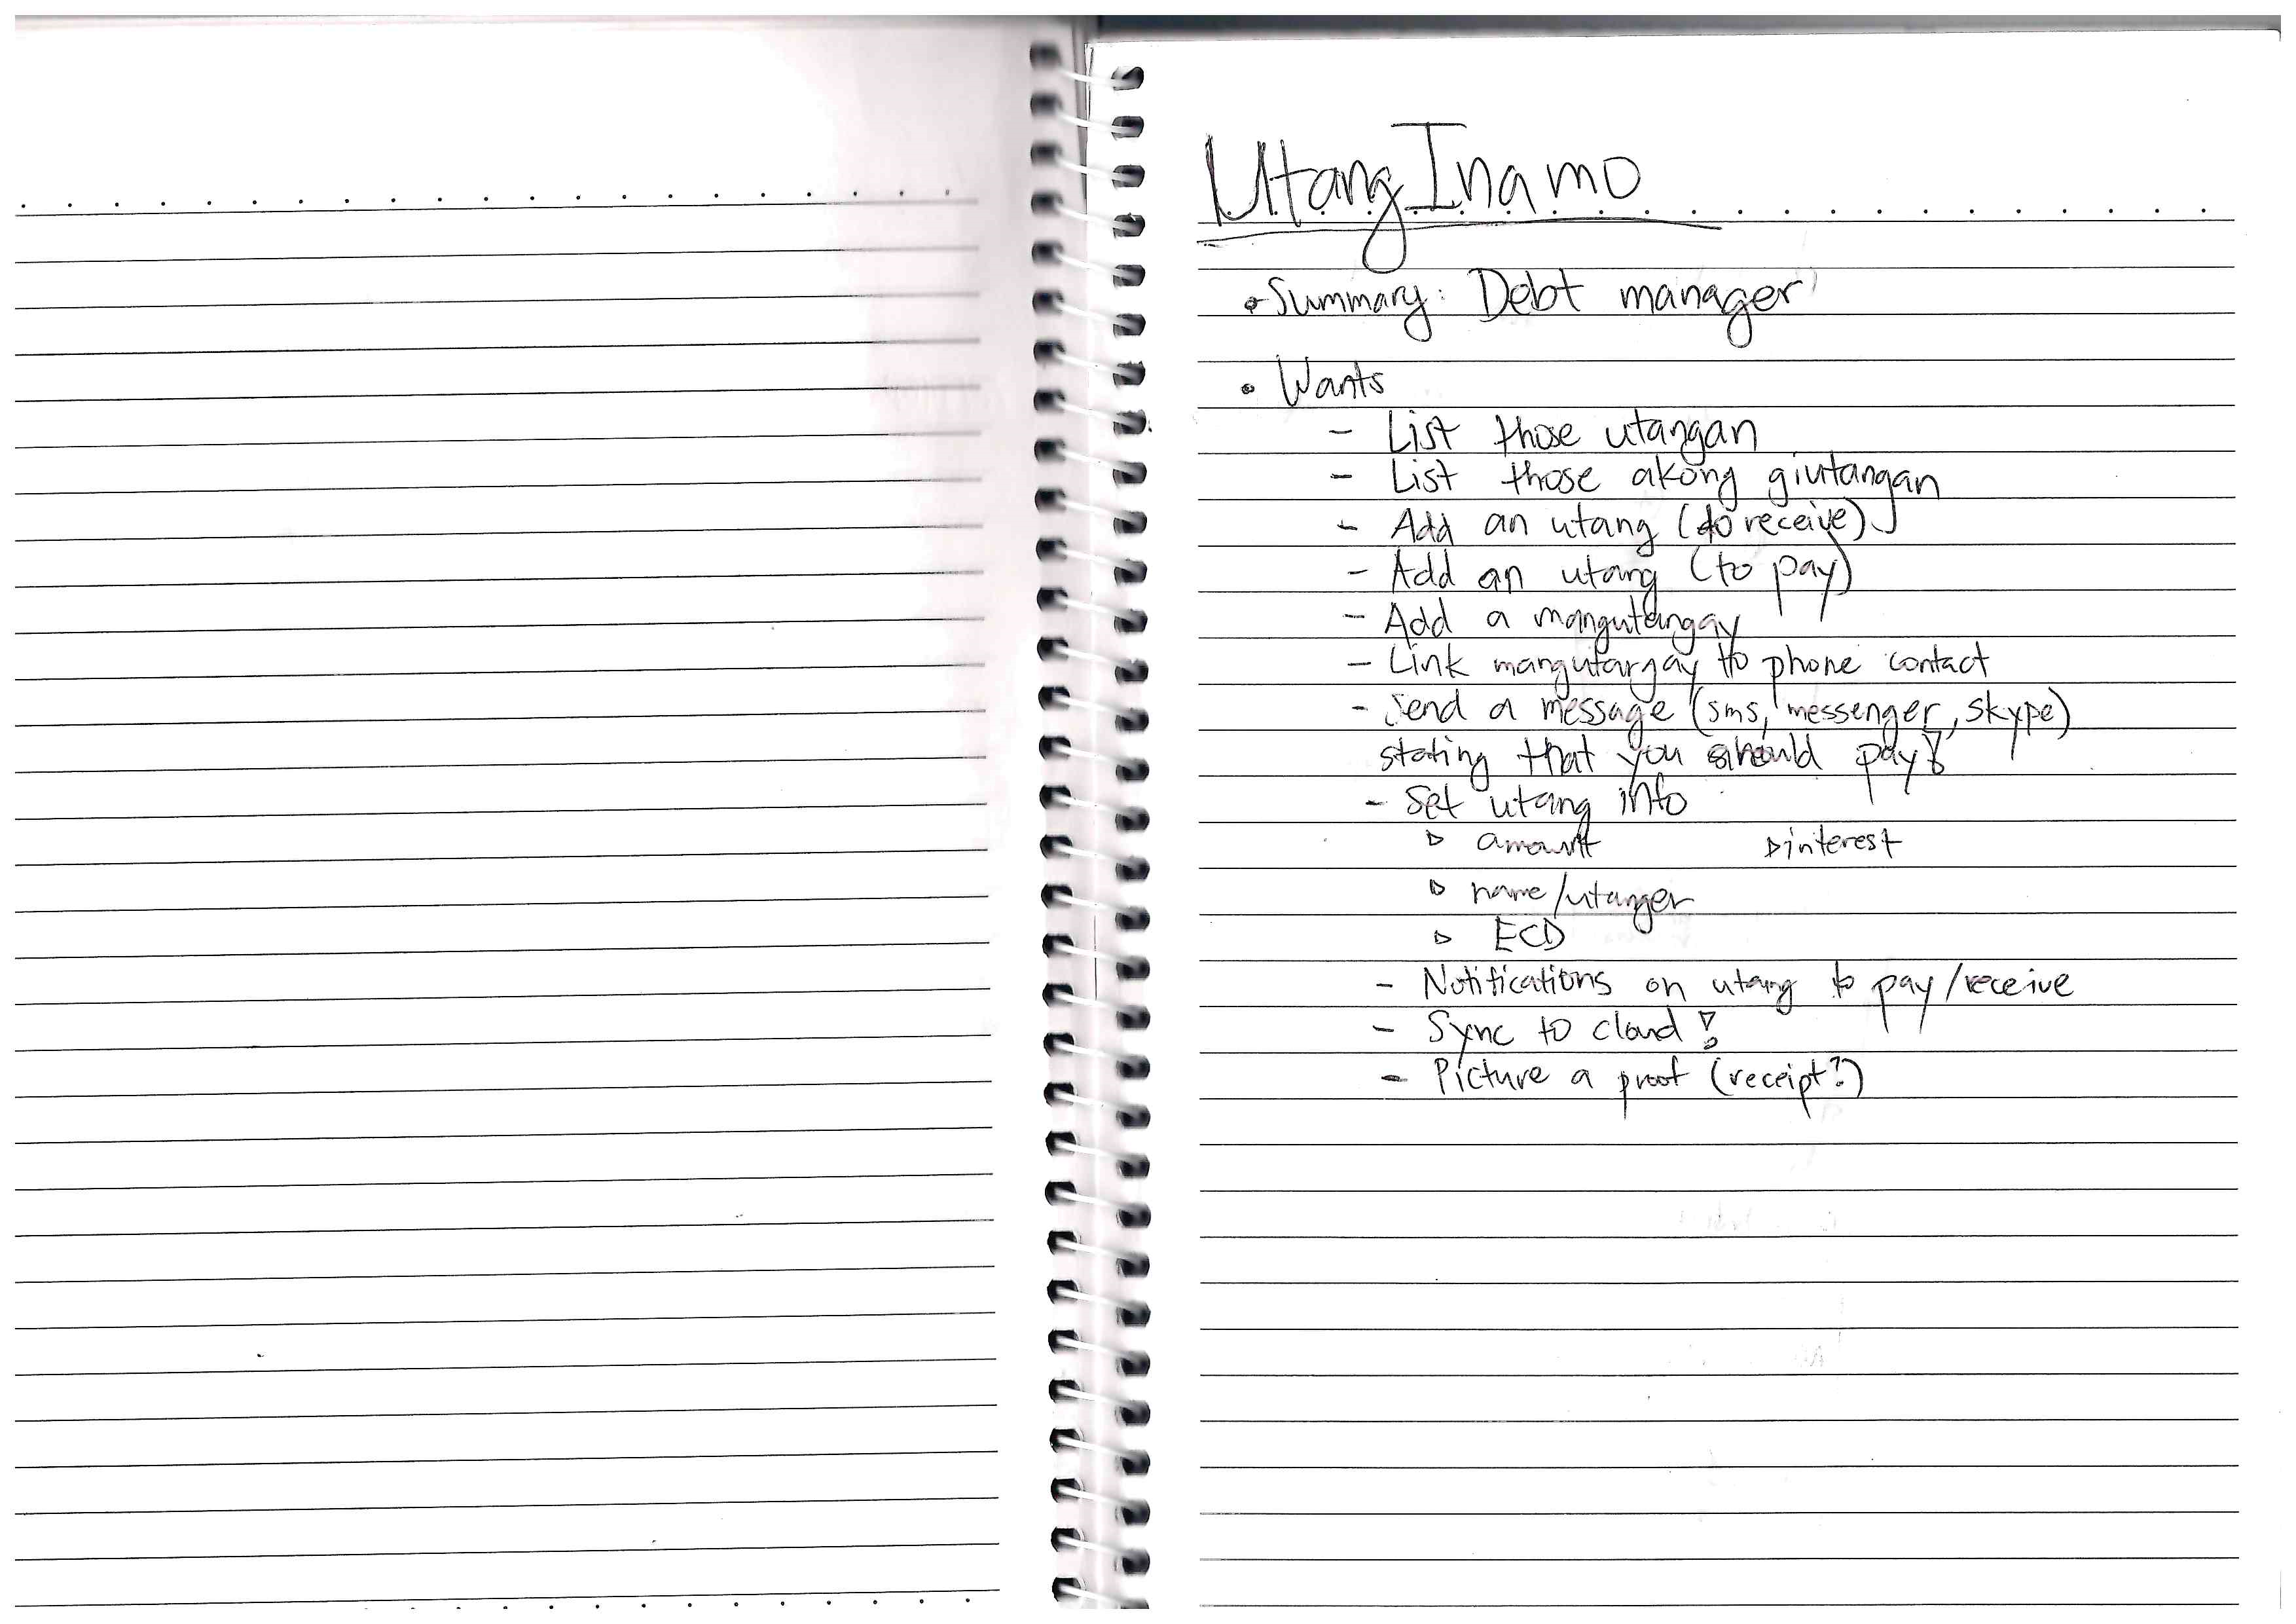 UtangInamo
• Summary: Debt manager
• Wants
- List those utangan
- List those akong giutangan
- Add an utang (to receive)
- Add an utang (to pay)
- Add a mangutangay
- Link mangutangay to phone contact
- Send a message (sms, messenger, skype)
stating that you should pay!
- Set utang info
▹ amount ▹ interest
▹ name/utanger
▹ ECD
- Notifications on utang to pay/receive
- Sync to cloud!
- Picture a proof (receipt?)